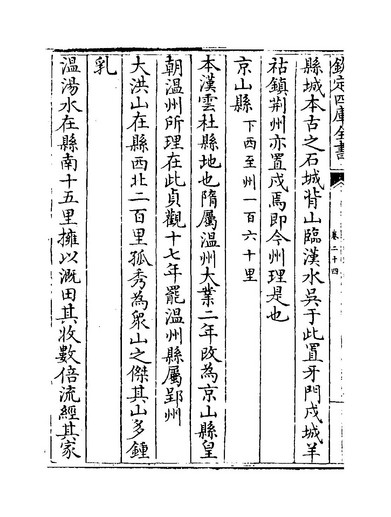 欽定四庫全書
卷二十四
縣城本古之石城背山臨漢水吳于此置牙門戍城羊
祜鎮荆州亦置戍焉即今州理是也
京山縣 下西至州一百六十里
本漢雲杜縣地也隋屬温州大業二年改為京山縣皇
朝温州所理在此貞觀十七年罷温州縣屬郢州
大洪山在縣西北二百里孤秀為衆山之傑其山多鍾
乳
温湯水在縣南十五里擁以溉田其收數倍流經其家